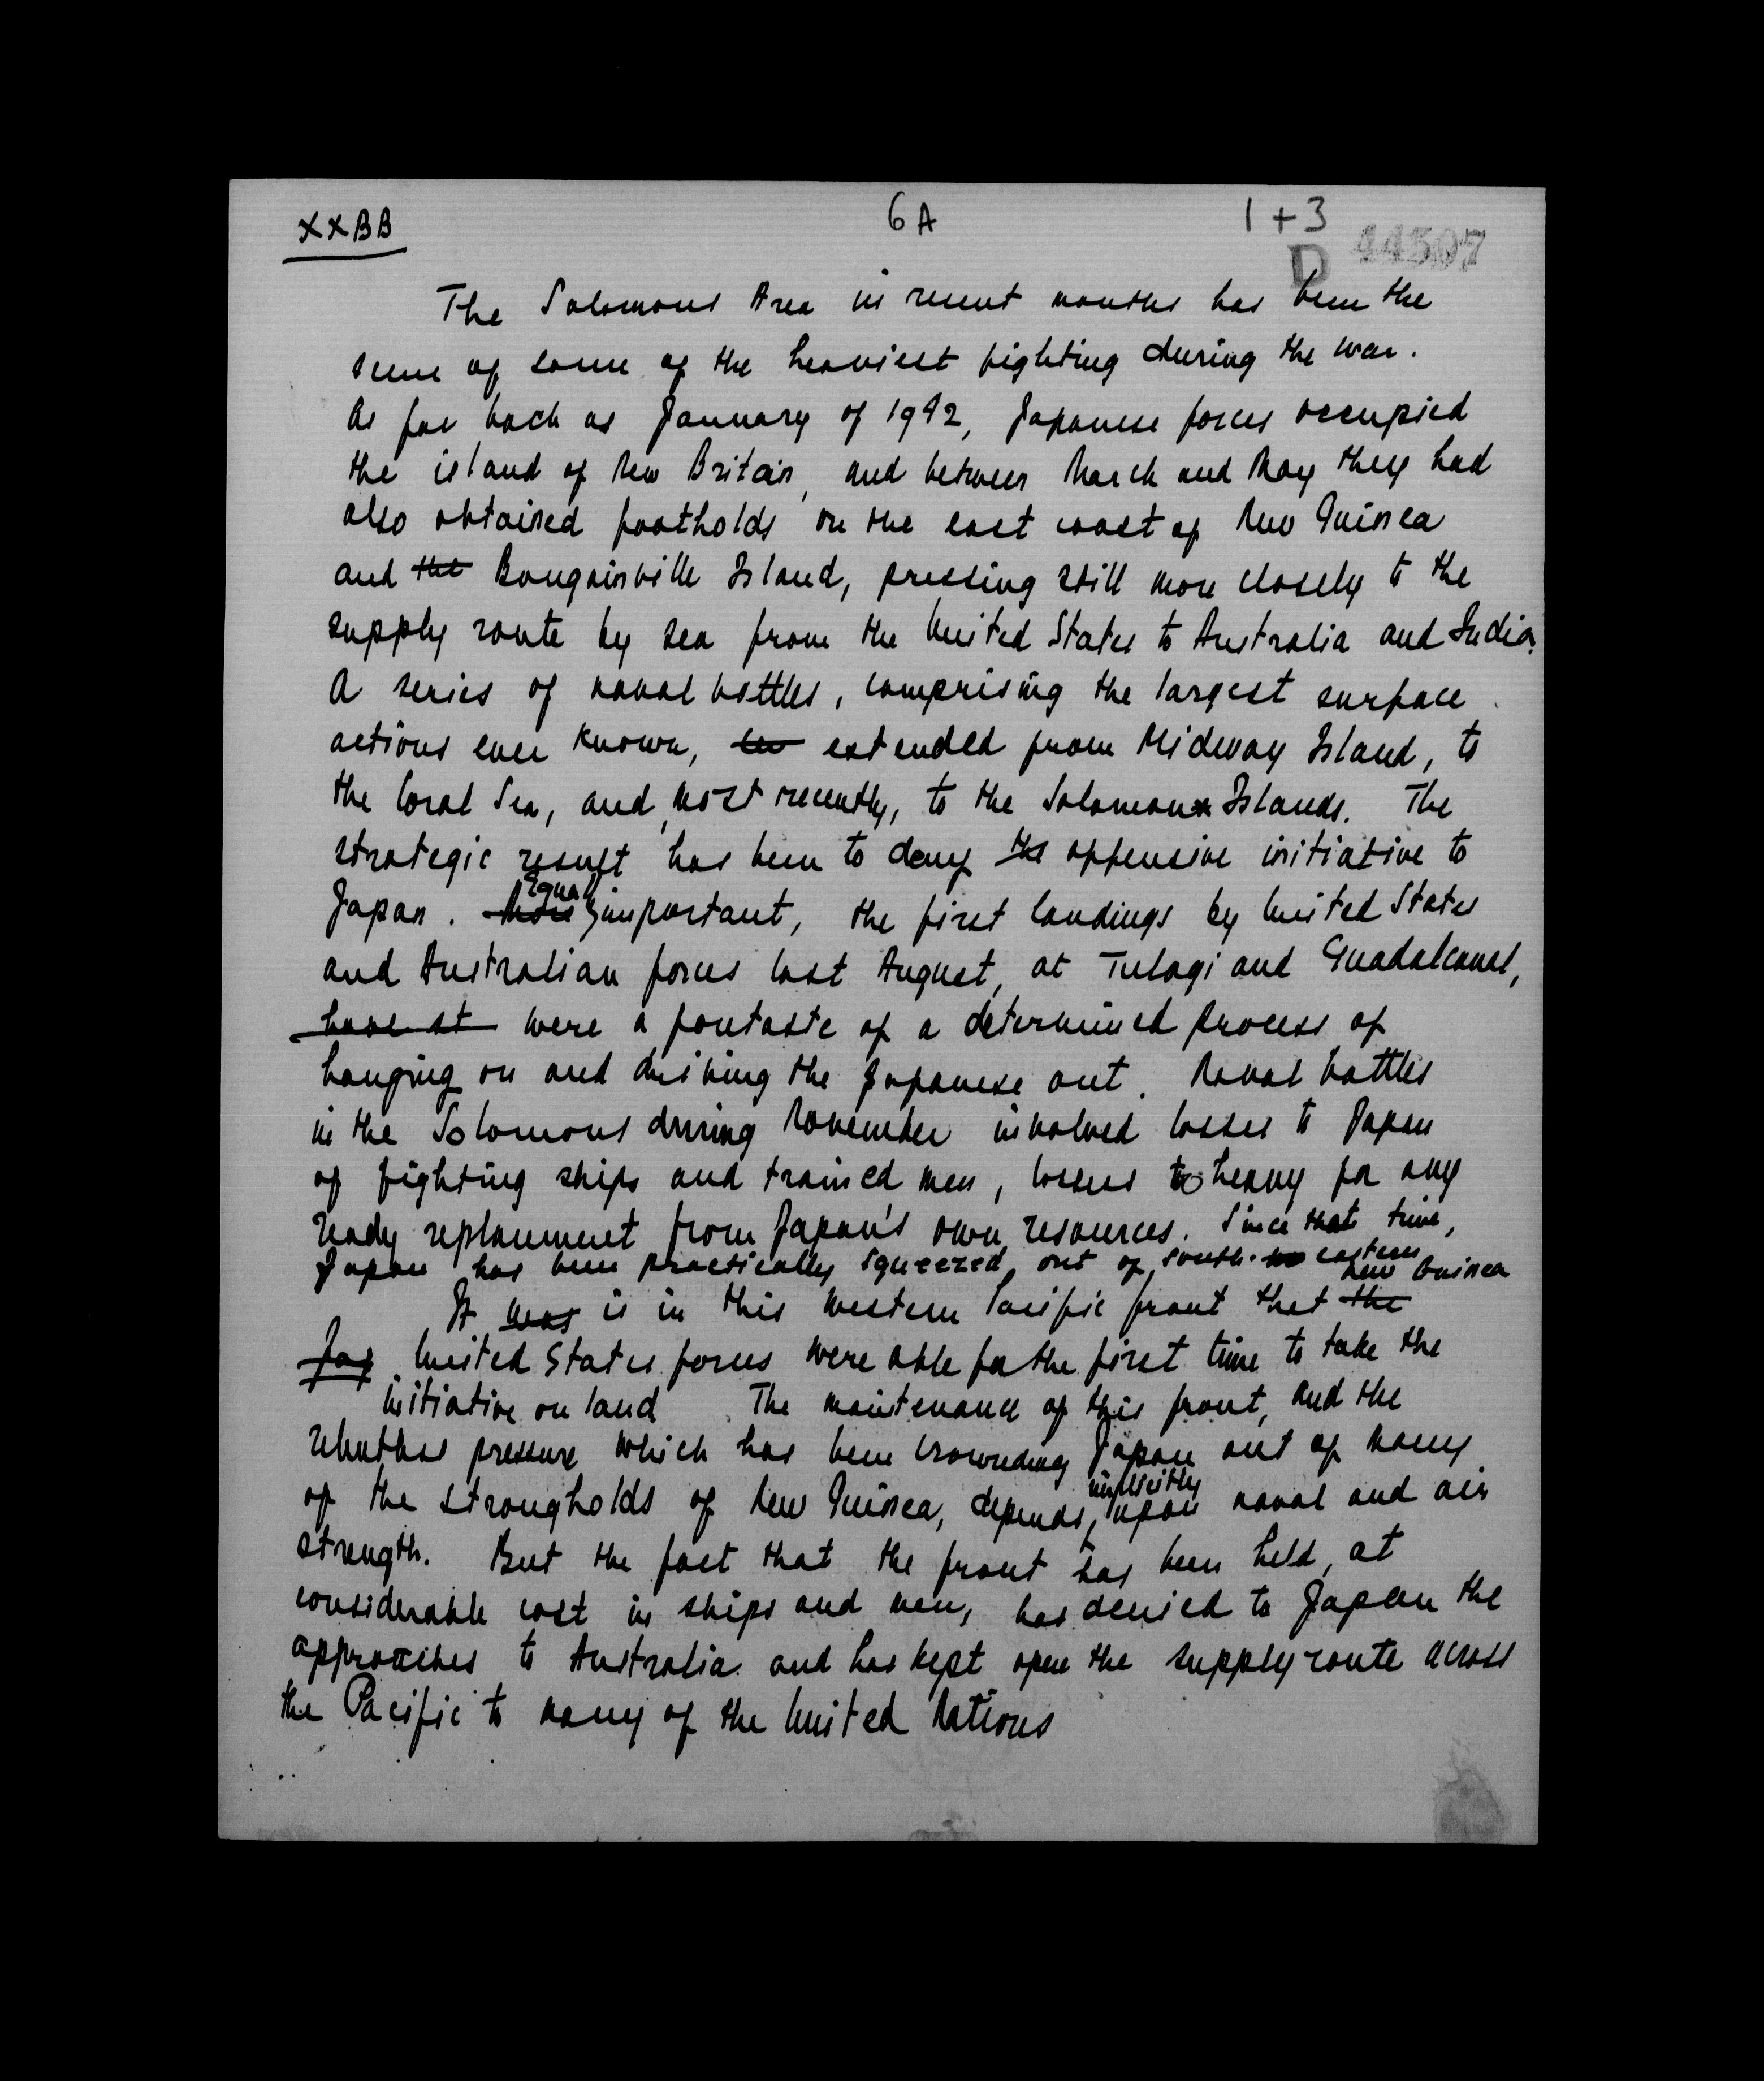 XXBB
6A
1 + 3
D 44507
The Solomons Area in recent months has been the
scene of some of the heaviest fighting during the war.
As far back as January of 1942, Japanese forces occupied
the island of New Britain, and between March and May they had
also obtained footholds on the east coast of New Guinea
and the Bougainville Island, pressing still more closely to the
supply route by sea from the United States to Australia and India.
A series of naval battles, comprising the largest surface
actions ever known, extended from Midway Island, to
the Coral Sea, and, most recently, to the Solomons Islands. The
strategic result has been to deny the offensive initiative to
Equally
Japan. More important, the first landings by United States
and Australian forces last August, at Tulagi and Guadalcanal,
have st were a foretaste of a determined process of
hanging on and driving the Japanese out. Naval battles
in the Solomons during November involved losses to Japan
of fighting ships and trained men, losses too heavy for any
ready replacement from Japan's own resources. Since that time,
Japan has been practically squeezed out of south-eastern
New Guinea
It was is in this Western Pacific front that the
Jap United States forces were able for the first time to take the
initiative on land. The maintenance of this front, and the
relentless pressure which has been crowding Japan out of many
implicitly
of the strongholds of New Guinea, depends, upon naval and air
strength. But the fact that the front has been held, at
considerable cost in ships and men, has denied to Japan the
approaches to Australia and has kept open the supply route across
the Pacific to many of the United Nations